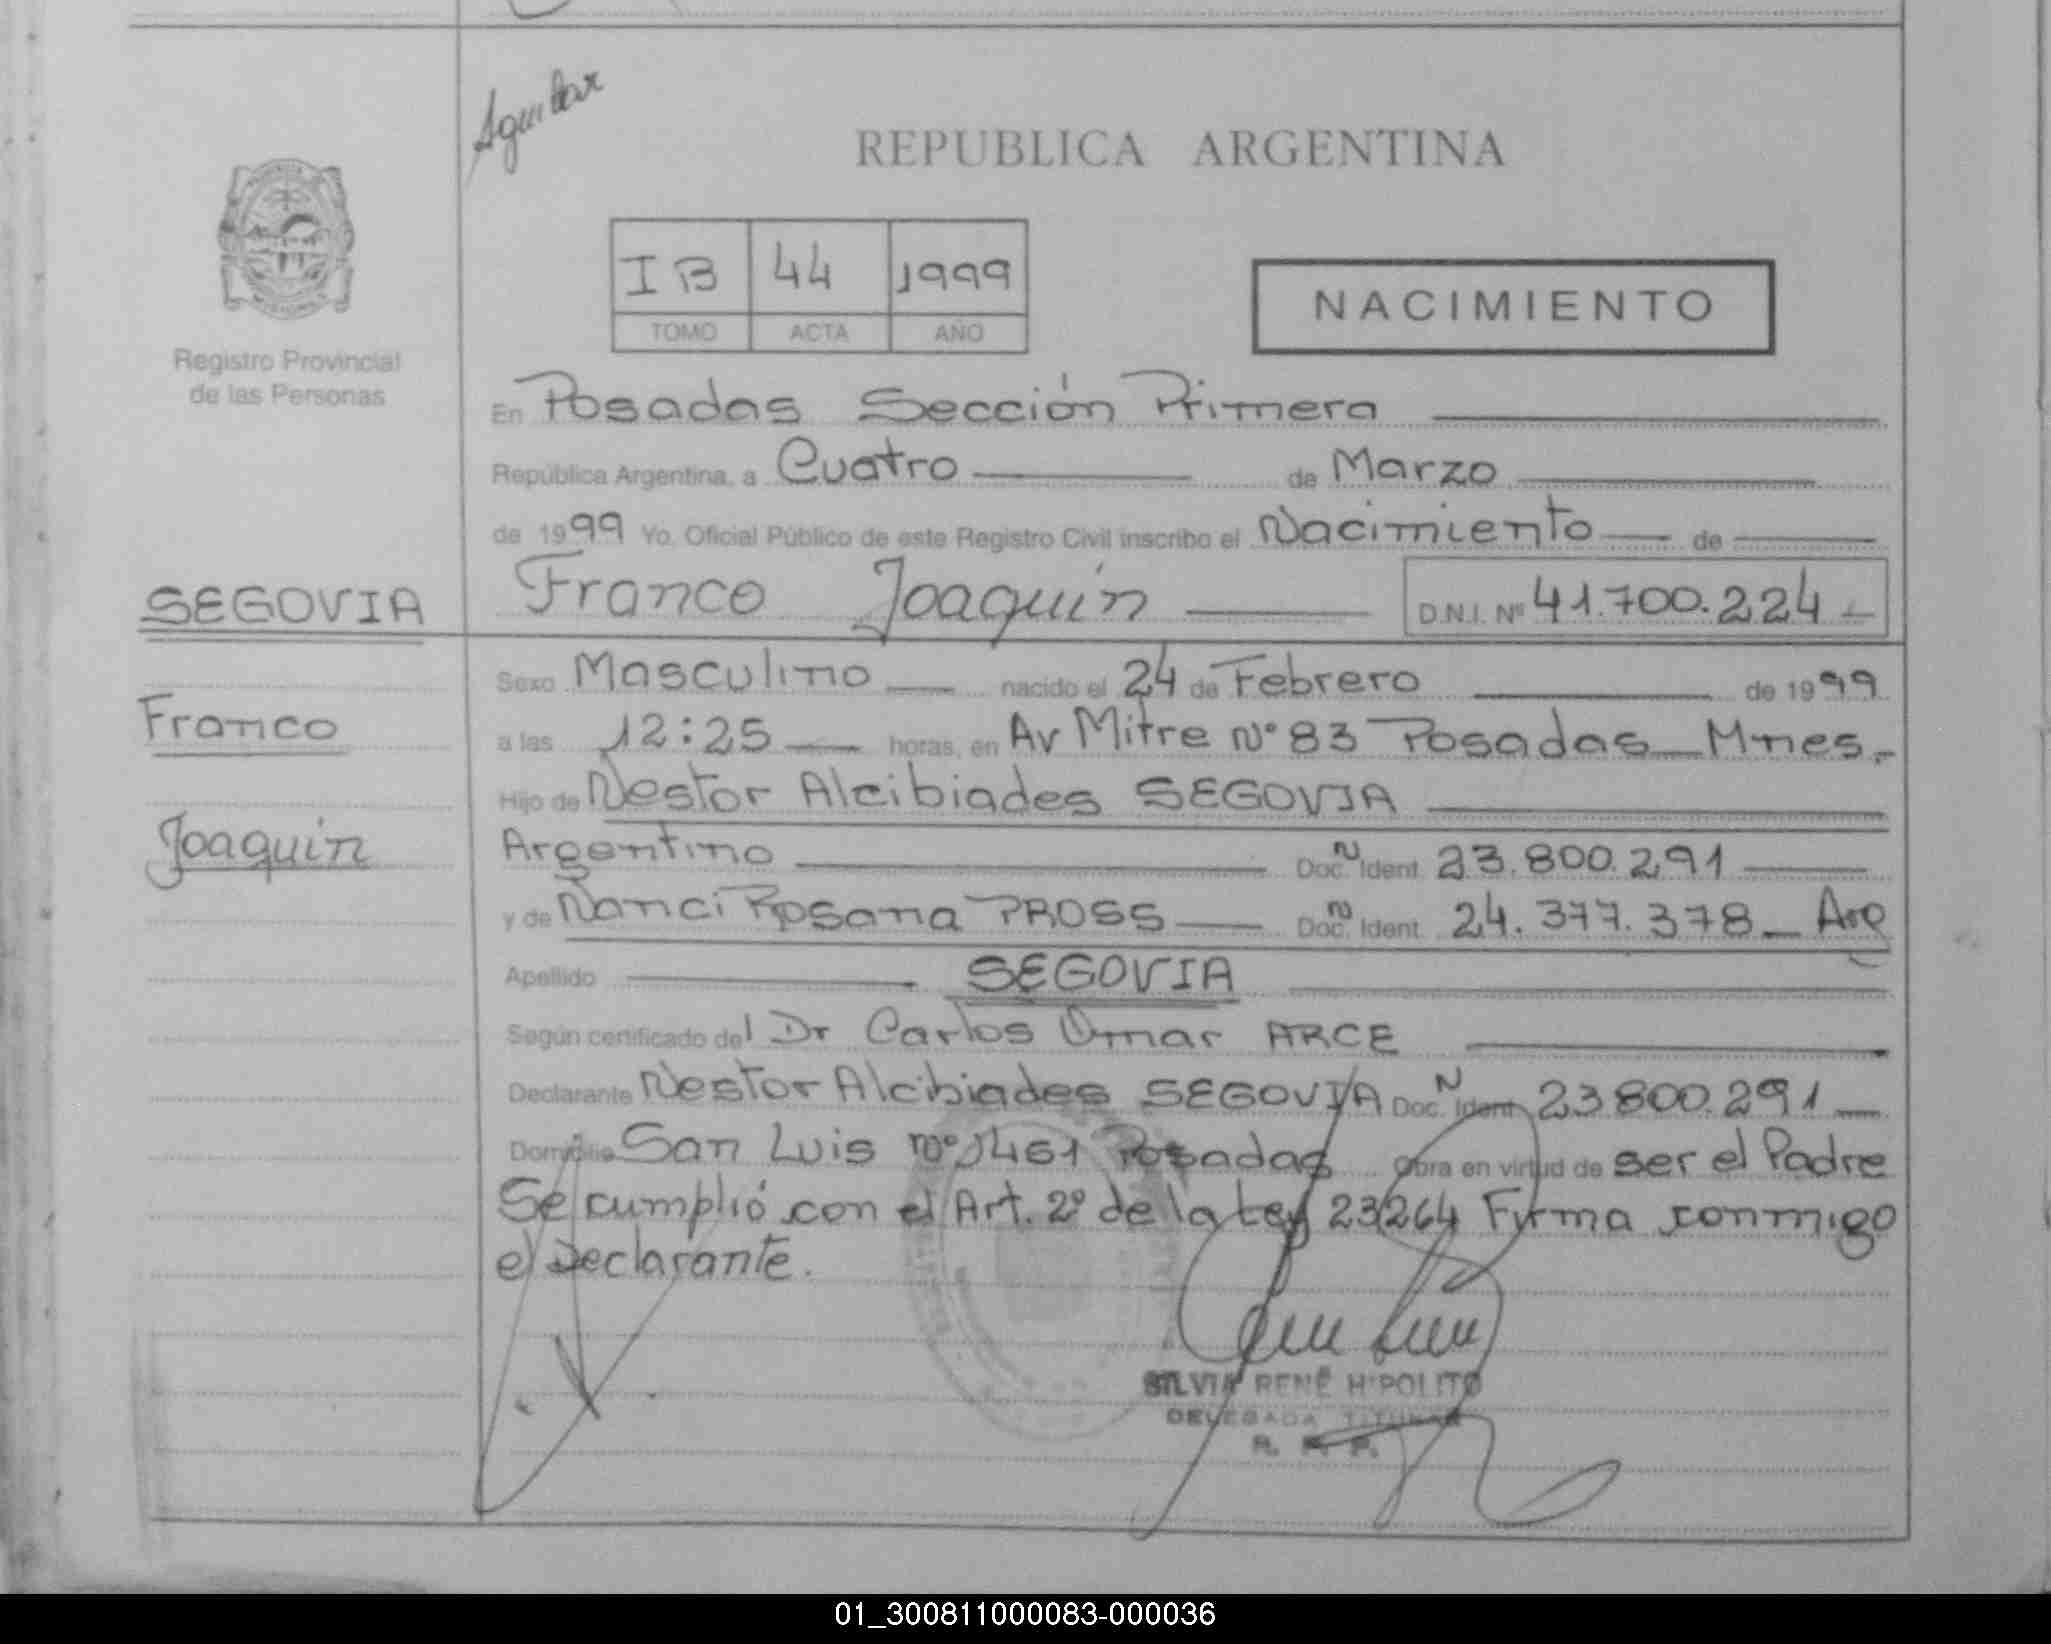 Aguilar
REPUBLICA ARGENTINA
I B 44 1999
TOMO ACTA AÑO
NACIMIENTO
Registro Provincial
de las Personas
En Posadas Sección Primera
República Argentina, a Cuatro de Marzo
de 1999 Yo, Oficial Público de este Registro Civil inscribo el Nacimiento de
SEGOVIA
Franco Joaquín D.N.I. Nº 41.700.224
Sexo Masculino nacido el 24 de Febrero de 1999
Franco
a las 12:25 horas, en Av Mitre Nº 83 Posadas Mnes.
Hijo de Nestor Alcibiades SEGOVIA
Joaquín
Argentino Doc. N Ident. 23.800.291
y de Nanci Rosana PROSS Doc. N Ident. 24.377.378 Arg
Apellido SEGOVIA
Según certificado del Dr Carlos Omar ARCE
Declarante Nestor Alcibiades SEGOVIA Doc. N Ident. 23800.291
Domicilio San Luis nº 1461 Posadas Obra en virtud de ser el Padre
Se cumplió con el Art. 2º de la Ley 23264 Firma conmigo
el Declarante.
SILVIA RENÉ HIPOLITO
DELEGADA TITULAR
01_300811000083-000036